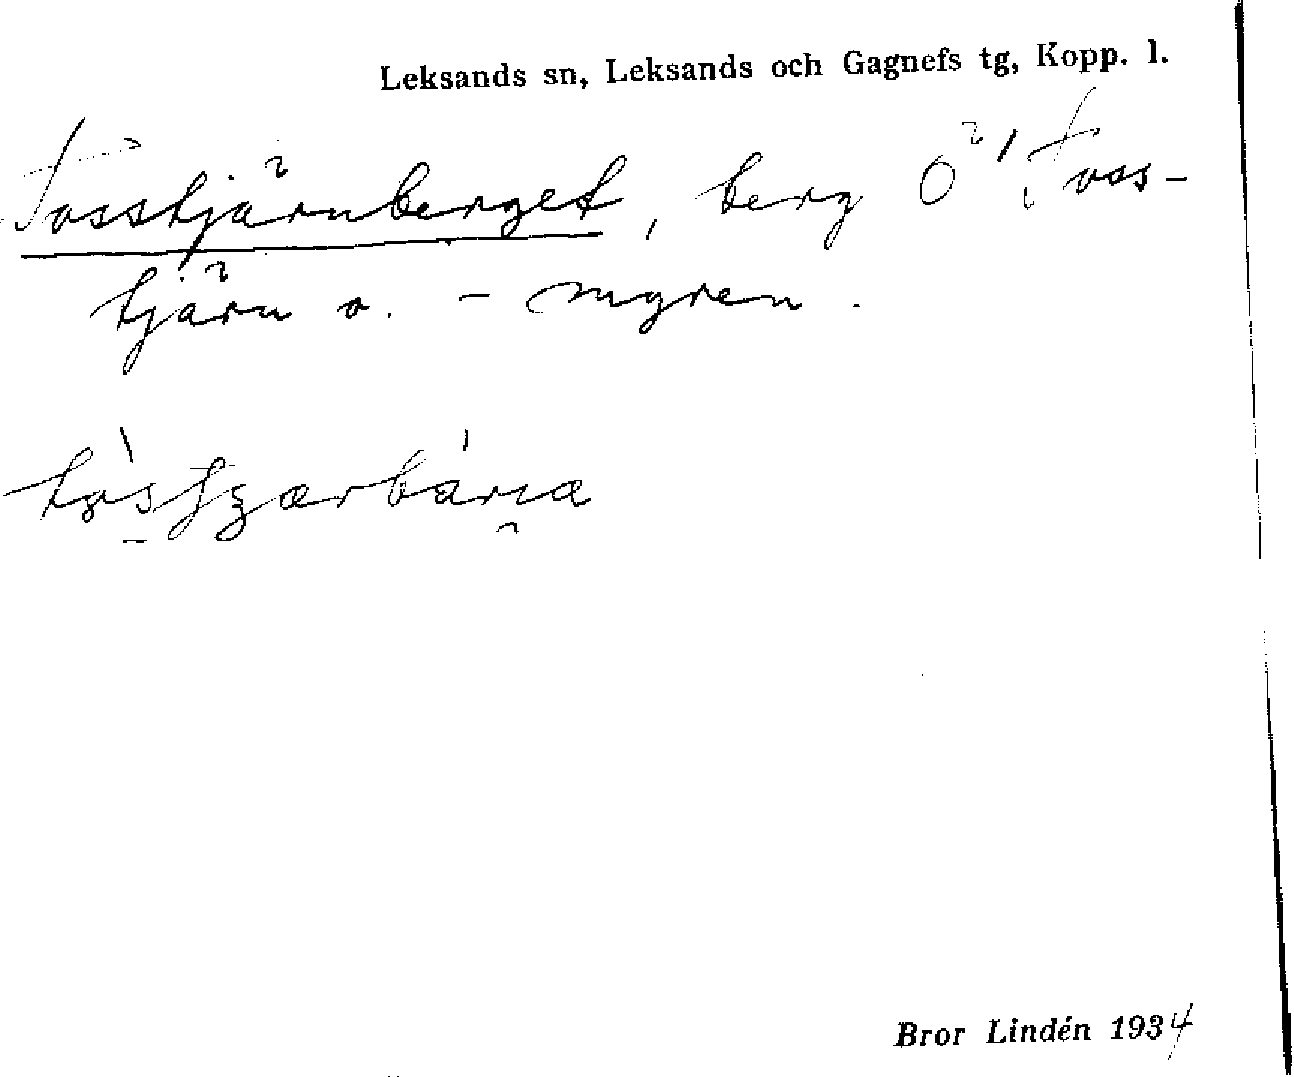 Leksands sn, Leksands och Gagnefs tg, Kopp. l.
Tosstjärnberget, berg Ö. Toss-
tjärn o. - myren.
Bror Lindén 1934